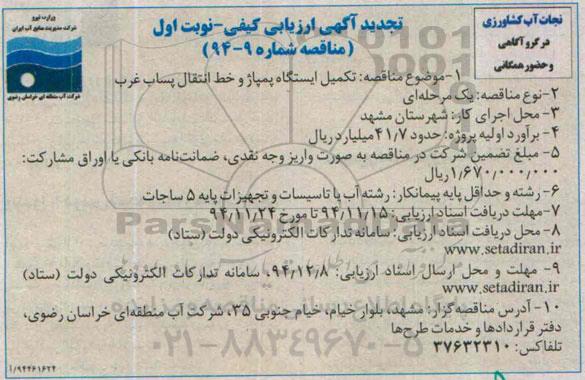 نجات آب کشاورزی
در گرو آگاهی
و حضور همگانی
تجدید آگهی ارزیابی کیفی-نوبت اول
(مناقصه شماره ۹-۹۴)
وزارت نیرو
شرکت مدیریت منابع آب ایران
شرکت آب منطقه ای خراسان رضوی
۱-موضوع مناقصه: تکمیل ایستگاه پمپاژ و خط انتقال پساب غرب
۲-نوع مناقصه: یک مرحله‌ای
۳- محل اجرای کار: شهرستان مشهد
۴- برآورد اولیه پروژه: حدود ۴۱/۷میلیارد ریال
۵- مبلغ تضمین شرکت در مناقصه به صورت واریز وجه نقدی، ضمانت‌نامه بانکی یا اوراق مشارکت:
۱/۶۷۰/۰۰۰/۰۰۰ریال
۶- رشته و حداقل پایه پیمانکار: رشته آب یا تاسیسات و تجهیزات پایه ۵ ساجات
۷-مهلت دریافت اسناد ارزیابی: ۹۴/۱۱/۱۵ تا مورخ ۹۴/۱۱/۲۴
۸- محل دریافت اسناد ارزیابی: سامانه تدارکات الکترونیکی دولت (ستاد)
www.setadiran.ir
۹- مهلت و محل ارسال اسناد ارزیابی: ۹۴/۱۲/۸، سامانه تدارکات الکترونیکی دولت (ستاد)
www.setadiran.ir
۱۰- آدرس مناقصه‌گزار: مشهد، بلوار خیام، خیام جنوبی ۳۵، شرکت آب منطقه‌ای خراسان رضوی،
دفتر قراردادها و خدمات طرح‌ها
تلفاکس: ۳۷۶۳۳۳۱۰
۰۲۱-۸۸۳۴۹۶۷۰-۵
۱/۹۴۴۶۱۶۲۴